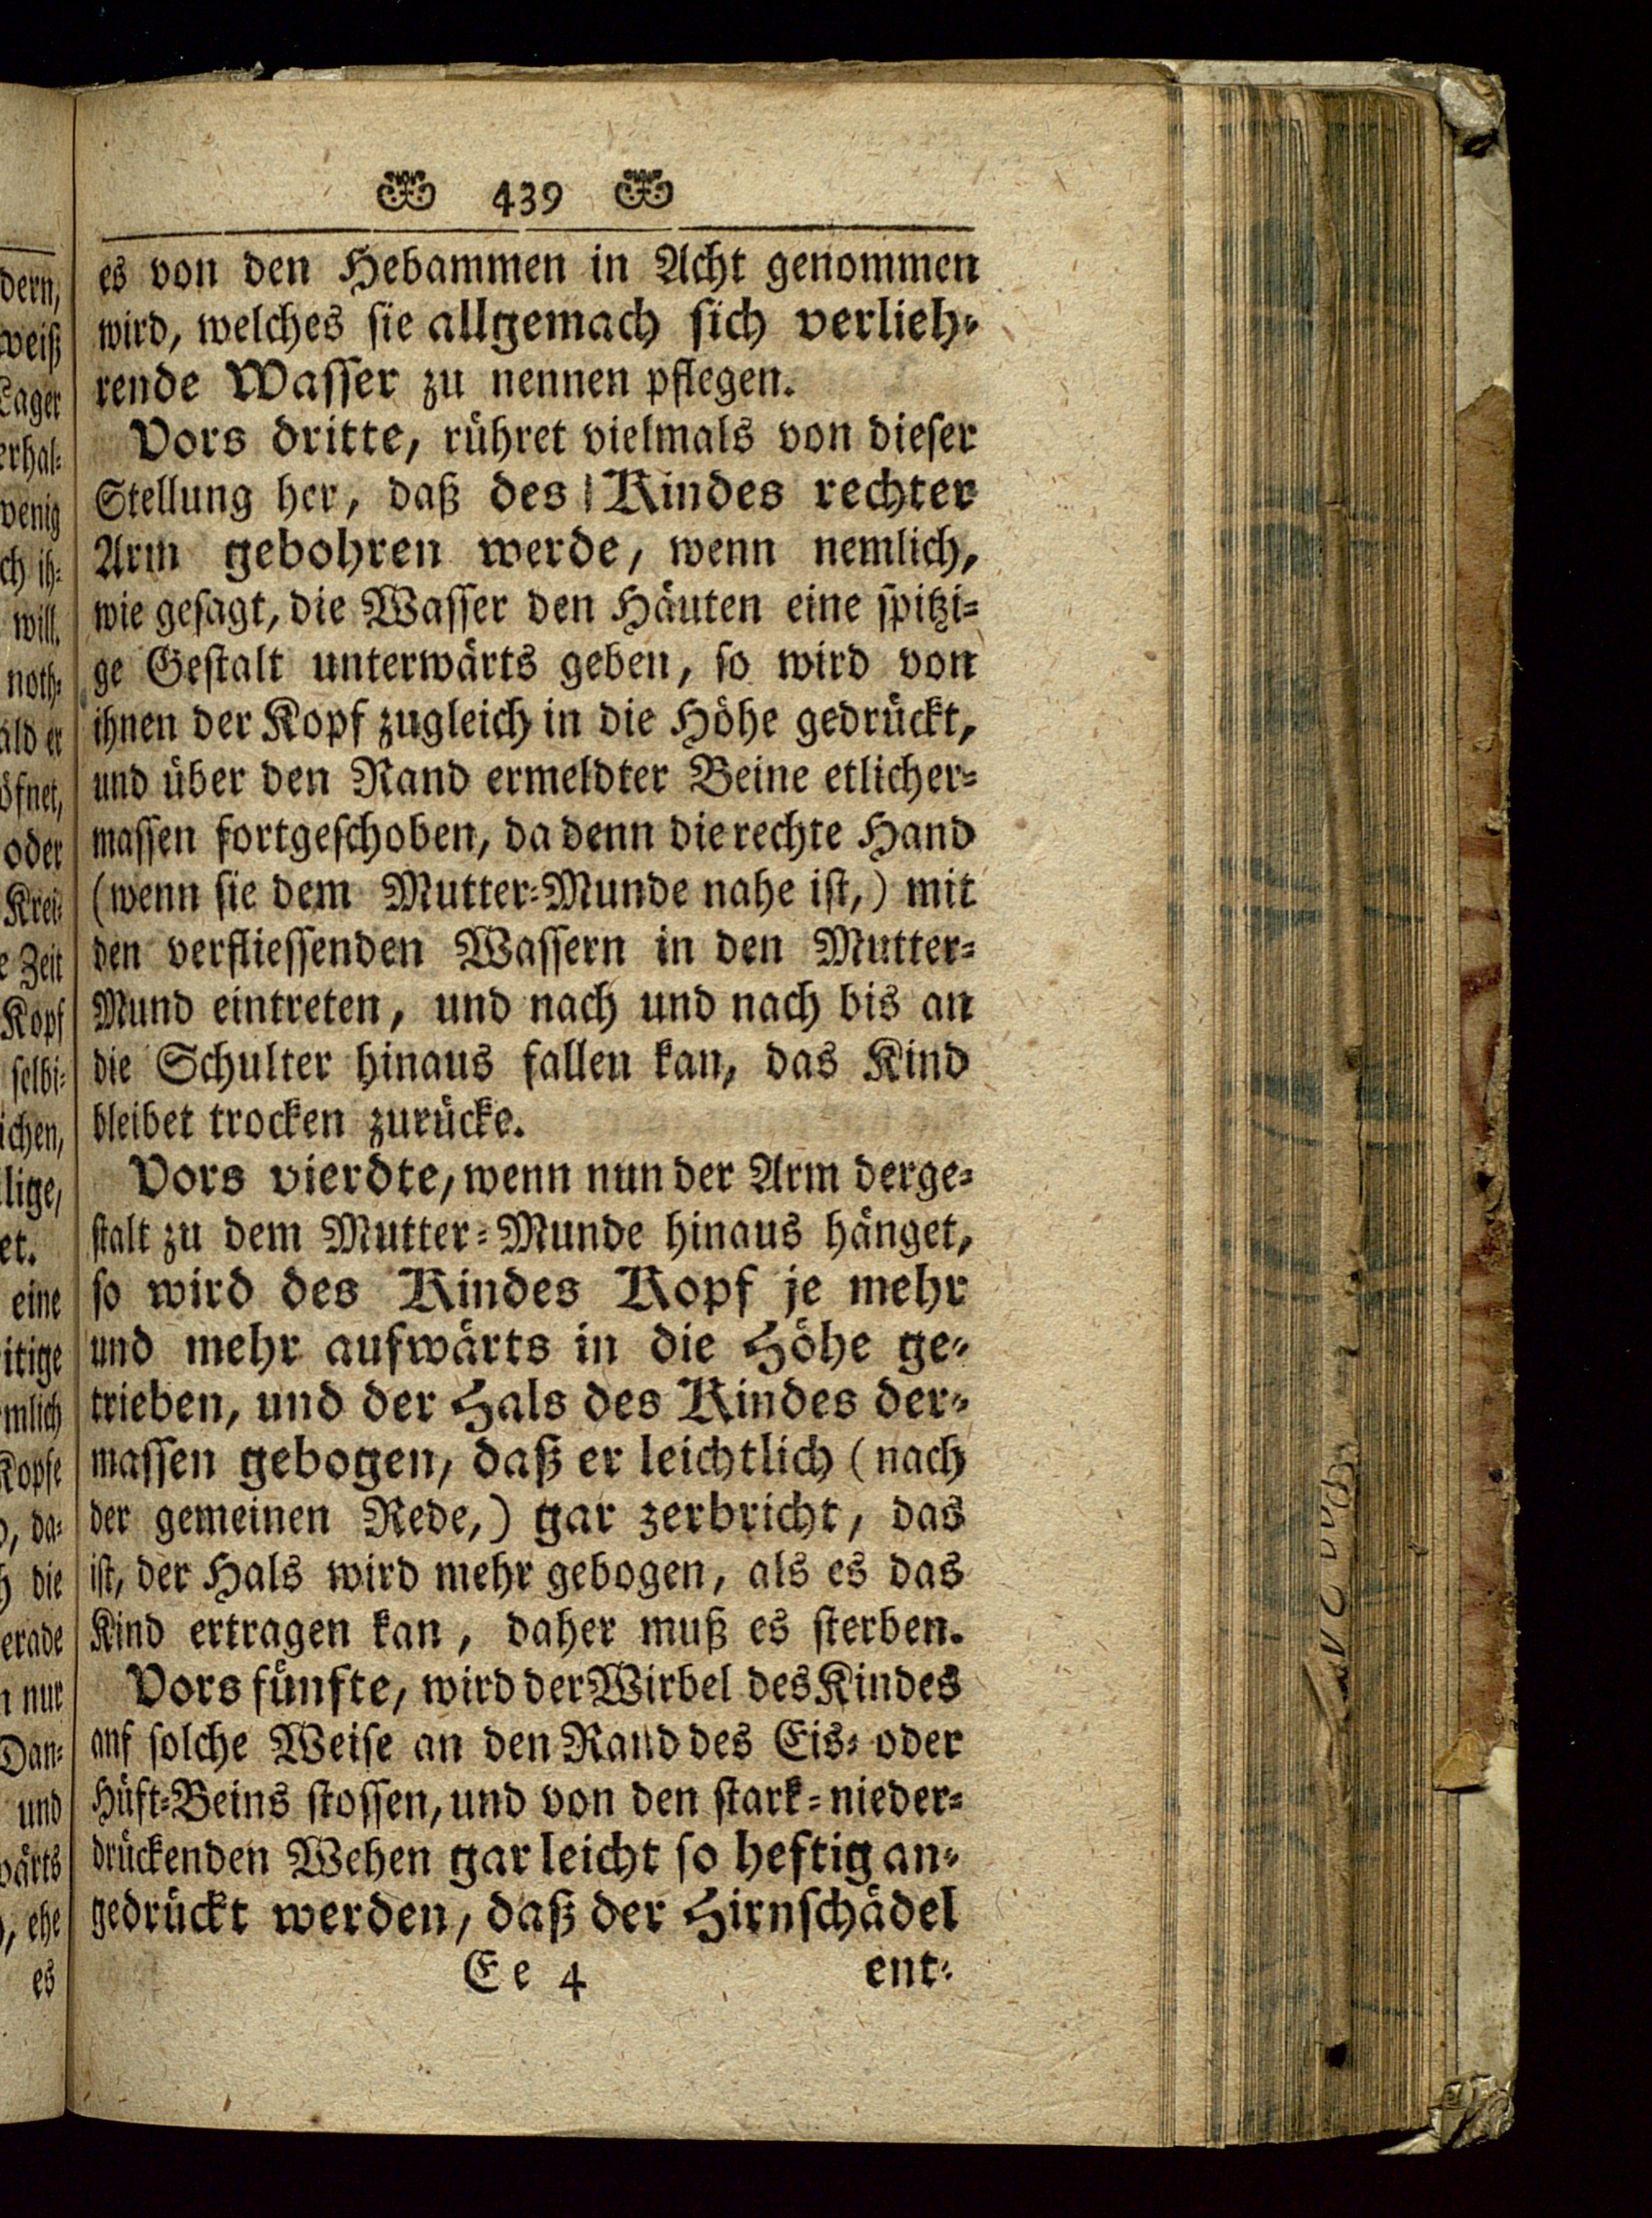 439
es von den Hebammen in Acht genommen
wird, welches sie allgemach sich verlieh-
rende Wasser zu nennen pflegen.
Vors dritte, rühret vielmals von dieser
Stellung her, daß des Kindes rechter
Arm gebohren werde, wenn nemlich,
wie gesagt, die Wasser den Häuten eine spitzi-
ge Gestalt unterwärts geben, so wird von
ihnen der Kopf zugleich in die Höhe gedrückt,
und über den Rand ermeldter Beine etlicher-
massen fortgeschoben, da denn die rechte Hand
(wenn sie dem Mutter-Munde nahe ist,) mit
den verfliessenden Wassern in den Mutter-
Mund eintreten, und nach und nach bis an
die Schulter hinaus fallen kan, das Kind
bleibet trocken zurücke.
Vors vierdte, wenn nun der Arm derge-
stalt zu dem Mutter-Munde hinaus hänget,
so wird des Kindes Kopf je mehr
und mehr aufwärts in die Höhe ge-
trieben, und der Hals des Kindes der-
massen gebogen, daß er leichtlich (nach
der gemeinen Rede,) gar zerbricht, das
ist, der Hals wird mehr gebogen, als es das
Kind ertragen kan, daher muß es sterben.
Vors fünfte, wird der Wirbel des Kindes
anf solche Weise an den Rand des Eis- oder
Hüft-Beins stossen, und von den stark-nieder-
drückenden Wehen gar leicht so heftig an-
gedrückt werden, daß der Hirnschädel
Ee 4 ent-
dern,
weiß
Lager
erhal-
wenig
ch ih-
will.
noth-
ald er
öfnet,
oder
Krei-
e Zeit
Kopf
selbi-
ichen,
lige,
et.
eine
itige
mlich
Kopfe
, da-
h die
erade
n nur
Dan-
und
wärts
, ehe
es